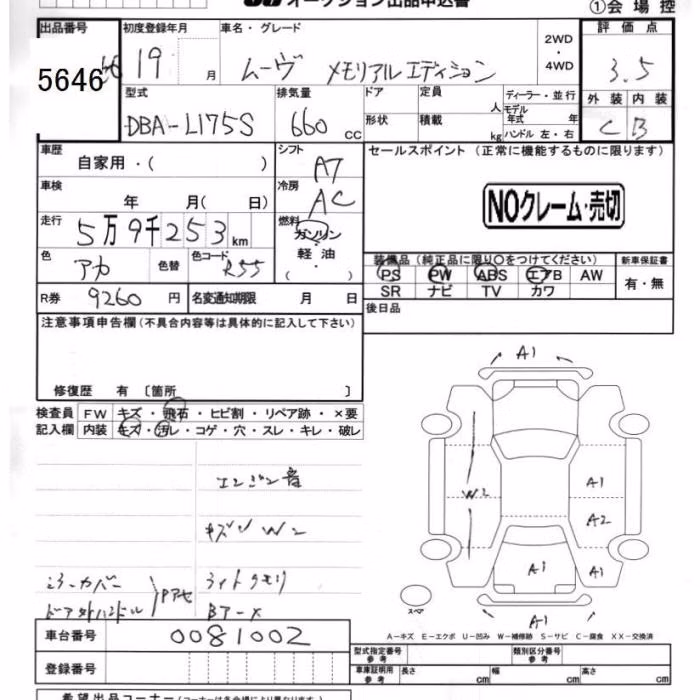 オークション出品申込書
①会場控
出品番号 初度登録年月 車名・グレード 評価点
5646 19 月 ムーヴ メモリアルエディション 2WD・4WD 3.5
型式 排気量 ドア 定員 人 ディーラー・並行 外装 内装
DBA-L175S 660 cc 形状 積載 kg モデル年式 年 ハンドル 左・右 C B
車歴 自家用・( ) シフト A7 セールスポイント (正常に機能するものに限ります)
車検 年 月( 日) 冷房 AC NOクレーム・売切
走行 5万9千253km 燃料 ガソリン・軽油・( )
色 アカ 色替 色コード R55 装備品(純正品に限り〇をつけてください) 新車保証書
PS PW ABS エアB AW 有・無
SR ナビ TV カワ
R券 9260円 名変通知期限 月 日 後日品
注意事項申告欄(不具合内容等は具体的に記入して下さい)
修復歴 有 〔箇所 〕
検査員 FW キズ・飛石・ヒビ割・リペア跡・×要
記入欄 内装 キズ・汚レ・コゲ・穴・スレ・キレ・破レ
エンジン音
キズ W2
ミラーカバー ライトクモリ
ドア外ハンドル Pアセ Bアーメ
A1
W2 A1
A2
A1 A1
スペア A1
A-キズ E-エクボ U-凹み W-補修跡 S-サビ C-腐食 XX-交換済
車台番号 0081002 型式指定番号 参考 類別区分番号 参考
登録番号 車庫証明用 参考 長さ cm 幅 cm 高さ cm
希望出品コーナー(コーナーは各会場により異なります)